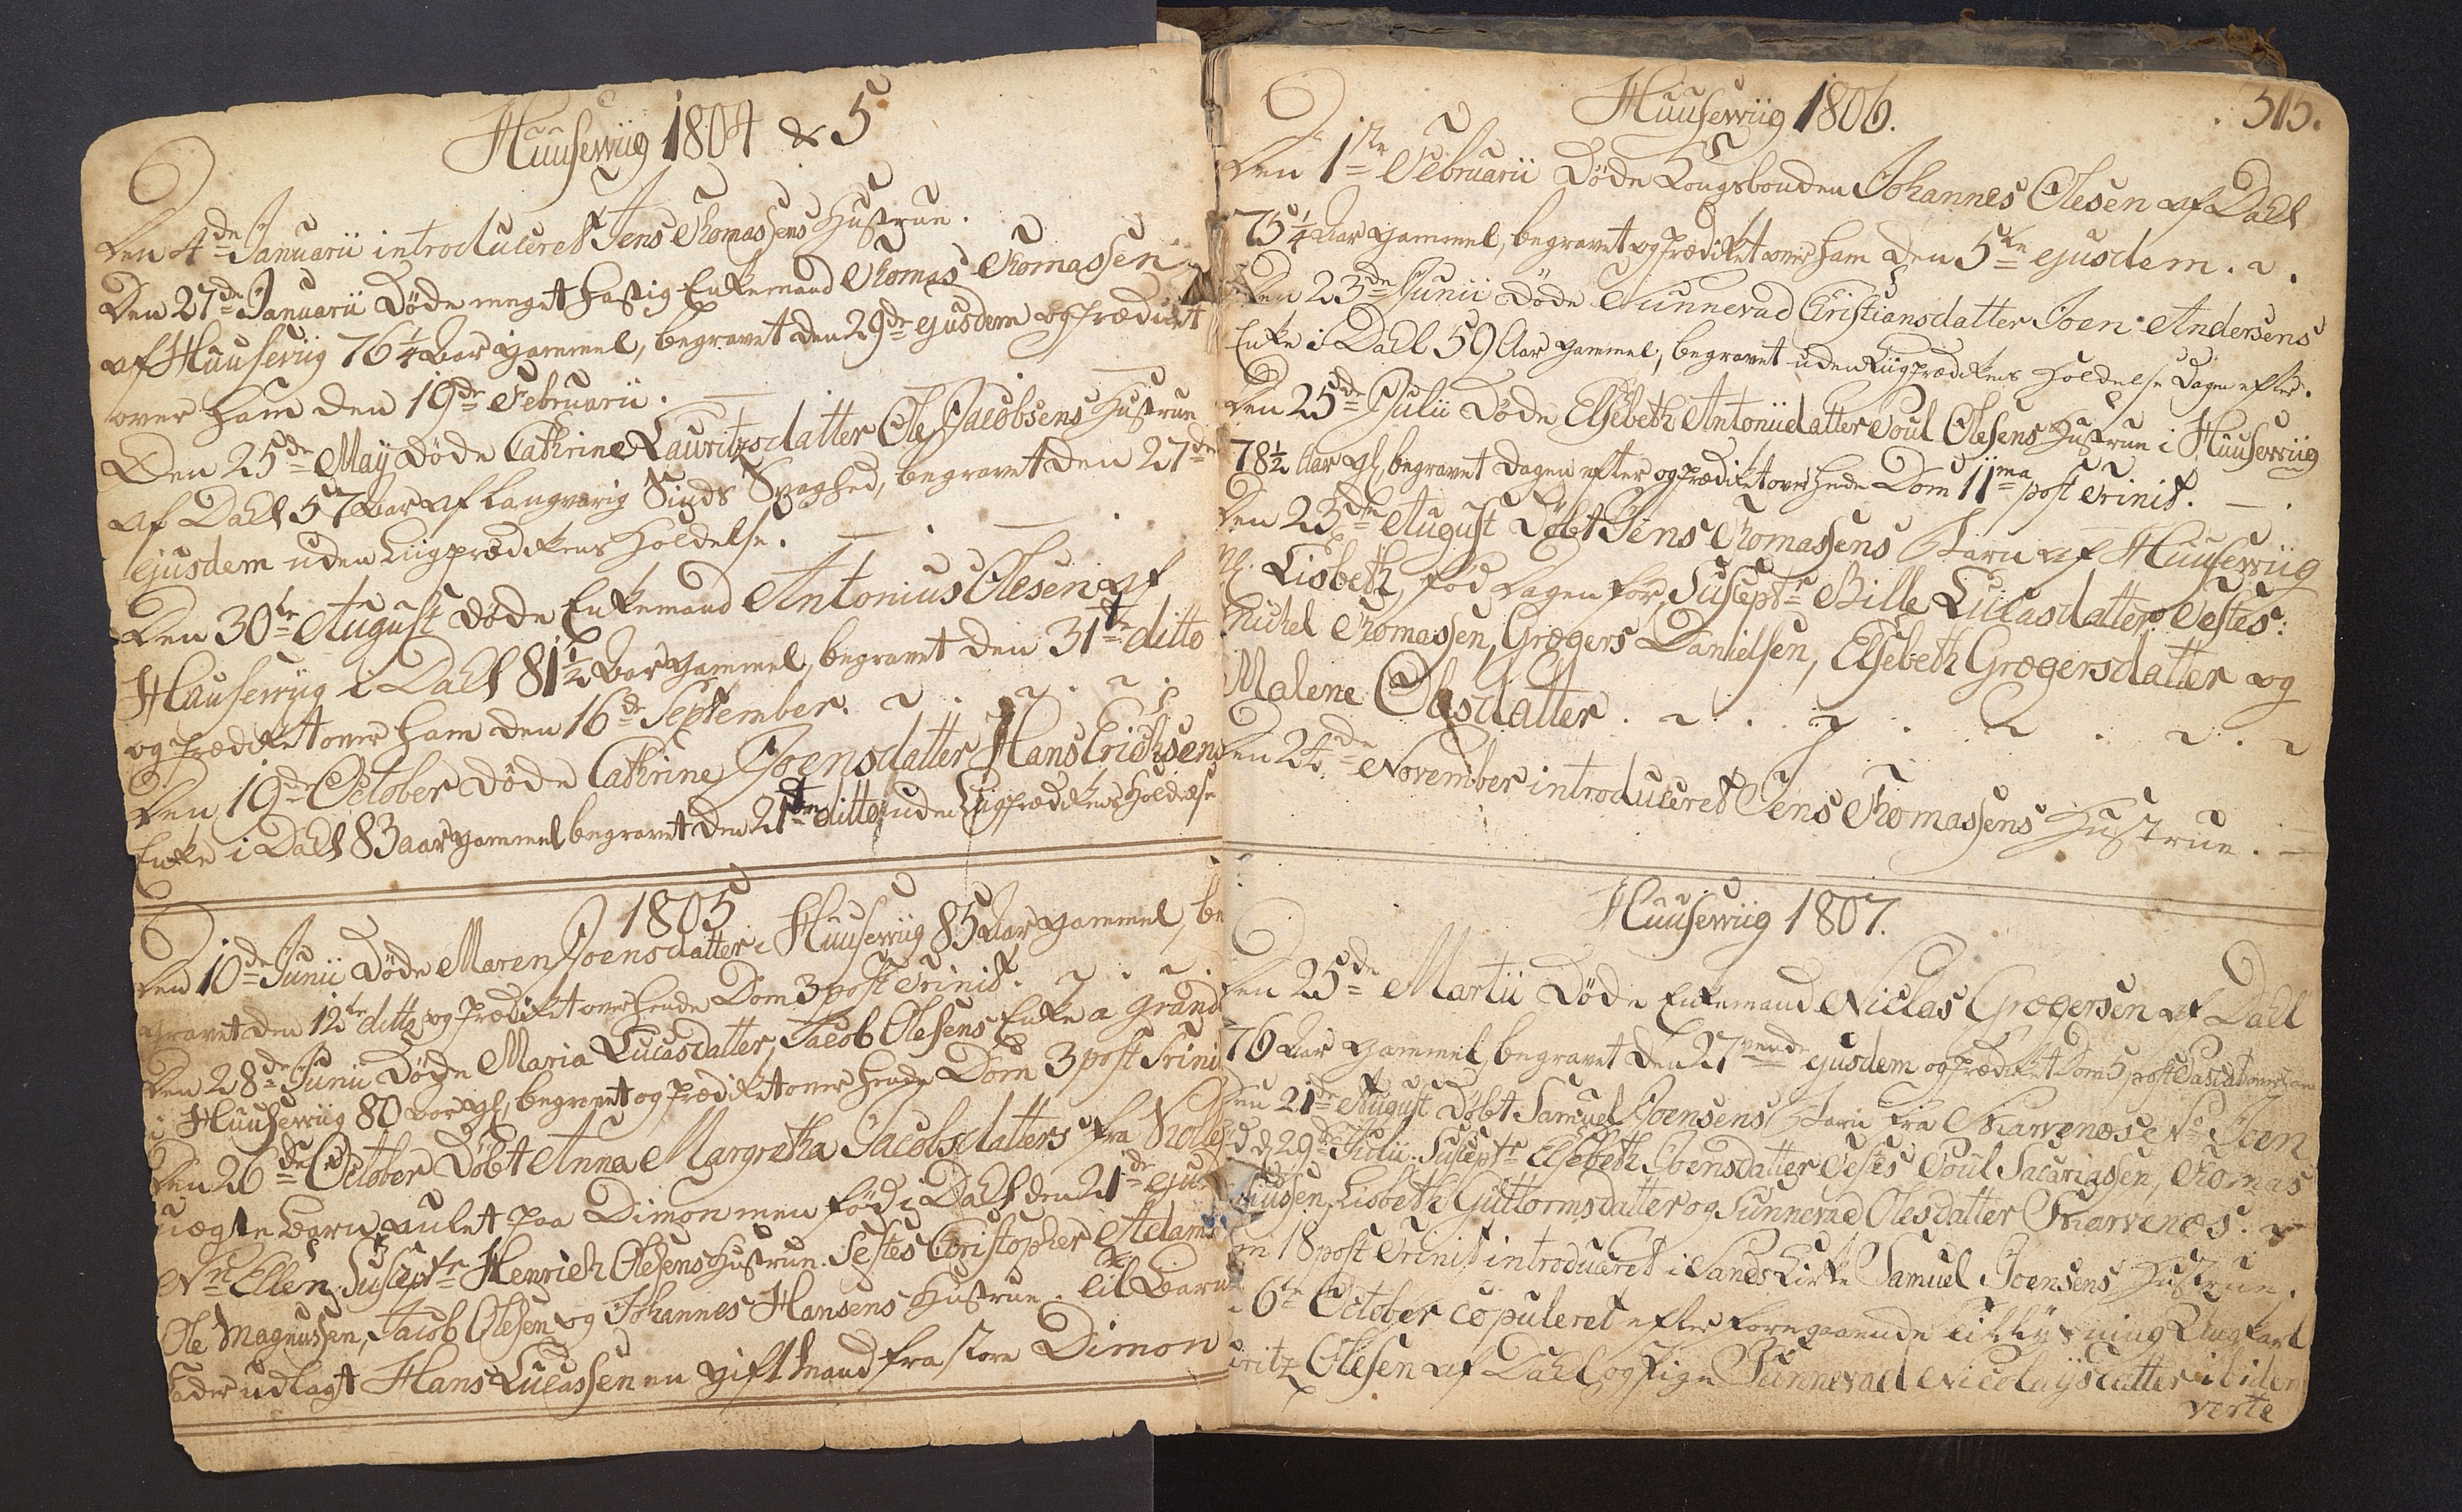 Huusewiig 1804 & 5
Den 4de Januarii introduceret Jens Thomassens Hustrue.
Den 27de Januarii Døde meget hastig Enkemand Thomas Thomassen
af Huusewiig 76 1/4 Aar gammel, begravet den 29de ejusdem og Prædiket
over ham den 19de Februarii.
Den 25de May Døde Cathrine Lauritzsdatter Ole Jacobsens Hustrue
af Dahl 57 Aar af langvarig Sinds Svaghed, begravet den 27de
ejusdem uden Liigprædikens Holdelse.
Den 30te August Døde Enkemand Antonius Olesen af
Huusewiig i Dahl 81 1/2 Aar gammel, begravet den 31te ditto
og Prædiket over ham den 16de September.
Den 19de October Døde Cathrine Joensdatter Hans Erichsens
Enke i Dahl 83 aar gammel begravet den 21de ditto uden Liigprædikens Holdelse
1805
Den 10de Junii Døde Maren Joensdatter i Huusewiig 85 Aar gammel, be
gravet den 12te ditto og Prædiket over hende Dom 3 post Trinit.
Den 28de Junii Døde Maria Lucasdatter, Jacob Olesens Enke a Grand
i Huusewiig 80 Aar gl, begravet og Prædiket over hende Dom 3 post Trinit
Den 26de October Døbt Anna Margretha Jacobsdatters fra
uægte Barn aulet paa Dimon men fød i Dahl den 21de ejus
Nn Ellen. Suscептr Henrich Olesens Hustrue. Testes Christopher Adams
Ole Magnussen, Jacob Olesen og Johannes Hansens Hustrue. til Barne
fader udlagt Hans Lucassen en gift Mand fra store Dimon
Huusewiig 1806.
315.
Den 1ste Februarii Døde Kongsbonden Johannes Olesen af Dahl
75 1/4 Aar gammel, begravet og Prædiket over ham den 5te ejusdem.
Den 23de Junii Døde Sunnevad Christiansdatter Joen Andersens
Enke i Dahl 59 Aar gammel, begravet uden Liigprædikens Holdelse Dagen efter.
Den 25de Julii Døde Elsebeth Antoniidatter Poul Olesens Hustrue i Huusewiig
78 1/2 Aar gl, begravet Dagen efter og Prædiket over hende Dom 11ma post Trinit.
Den 23de August Døbt Jens Thomassens Barn af Huusewiig
Nl. Lisbeth, fød Dagen før, Susceptr Bille Lucasdatter Testes:
Michel Thomassen, Grægers Danielsen, Elsebeth Grægersdatter og
Malene Olesdatter.
Den 24de November introduceret Jens Thomassens Hustrue.
Huusewiig 1807.
Den 25de Martii Døde Enkemand Niclas Grægersen af Dahl
76 Aar gammel, begravet den 27vende ejusdem og Prædiket Dom 5 post Pascha over ham
Den 21de August Døbt Samuel Joensens Barn fra Skarvenæs Nn Joen
fød d 29de Julii. Susceptr Elsebeth Joensdatter Testes Poul Sacariassen, Thomas
Lisbeth Guttormsdatter og Sunnevad Olesdatter Skarvenæs.
Dom 18 post Trinit introduceret i Sands Kirke Samuel Joensens Hustrue.
6te October copuleret efter foregaaende Tillysning Ungkarl
Lauritz Olesen af Dahl og Pige Sunnevad Nicolaysdatter ibidem
verte